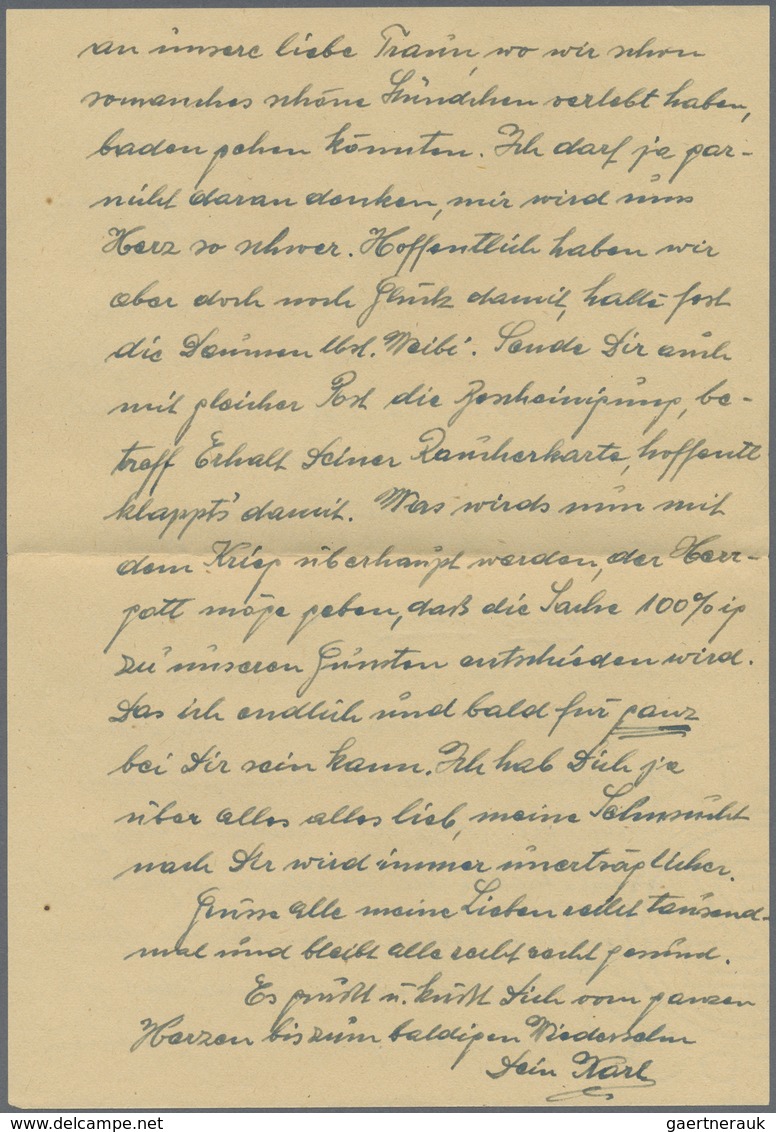 an unsere liebe Traun, wo wir schon
somanches schöne Stündchen verlebt haben,
baden gehen könnten. Ich darf ja gar-
nicht daran denken, mir wird ums
Herz so schwer. Hoffentlich haben wir
aber doch noch Glück damit, halte fest
die Daumen lbst. Weibi. Sende Dir auch
mit gleicher Post die Bescheinigung, be-
treff Erhalt Deiner Raucherkarte, hoffentl
klappts damit. Was wirds nun mit
dem Krieg überhaupt werden, der Herr-
gott möge geben, daß die Sache 100%ig
zu unseren Gunsten entschieden wird.
Das ich endlich und bald für ganz
bei Dir sein kann. Ich hab Dich ja
über alles alles lieb, meine Sehnsucht
nach Dir wird immer unerträglicher.
Grüsse alle meine Lieben recht tausend-
mal und bleibt alle recht recht gesund.
Es grüßt u. küßt Dich vom ganzen
Herzen bis zum baldigen Wiedersehn
Dein Karl
gaertnerauk